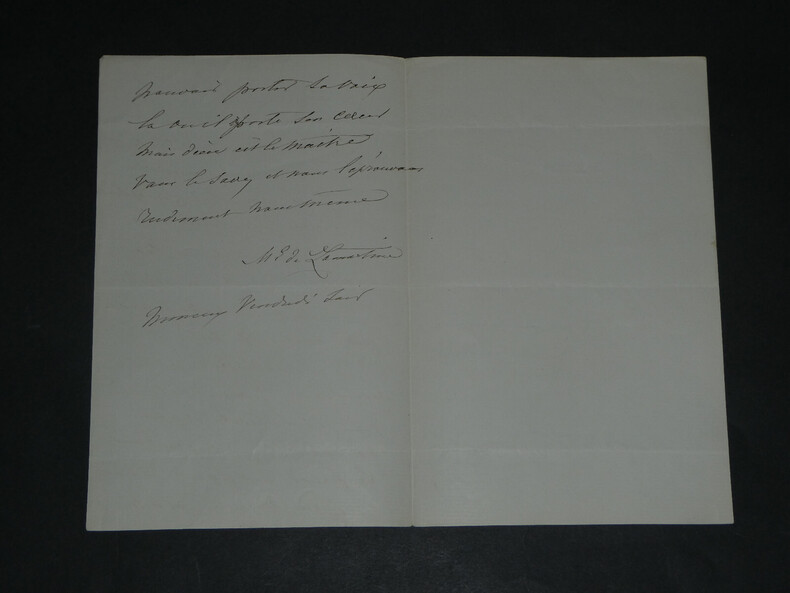 pouvait porter sa voix
la ou il porte son coeur
mais dieu est le maitre
vous le savez et nous l'éprouvons
rudement nous même
Mse de Lamartine
Monceau Vendredi soir